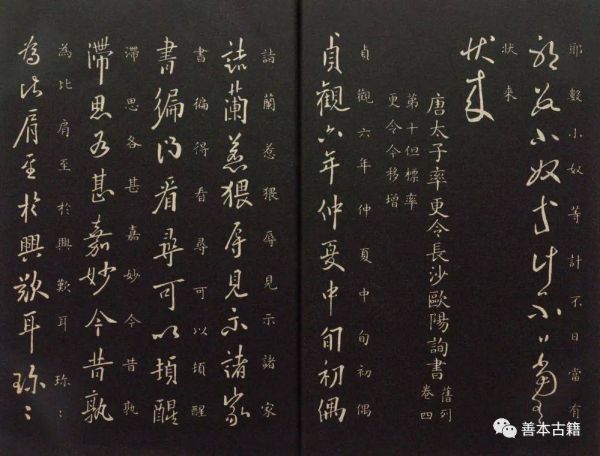 耶數小奴等計不日當有
耶數小奴等計不日當有
狀來
狀來
唐太子率更令長沙歐陽詢書 舊列卷四
第十但標率
更令今移增
貞觀六年仲夏中旬初偶
貞觀六年仲夏中旬初偶
詣蘭惹猥辱見示諸家
詣蘭惹猥辱見示諸家
書徧得看尋可以頓醒
書徧得看尋可以頓醒
滯思各甚嘉妙今昔孰
滯思各甚嘉妙今昔孰
為比肩至於興歎耳珎〻
為比肩至於興歎耳珎〻
善本古籍